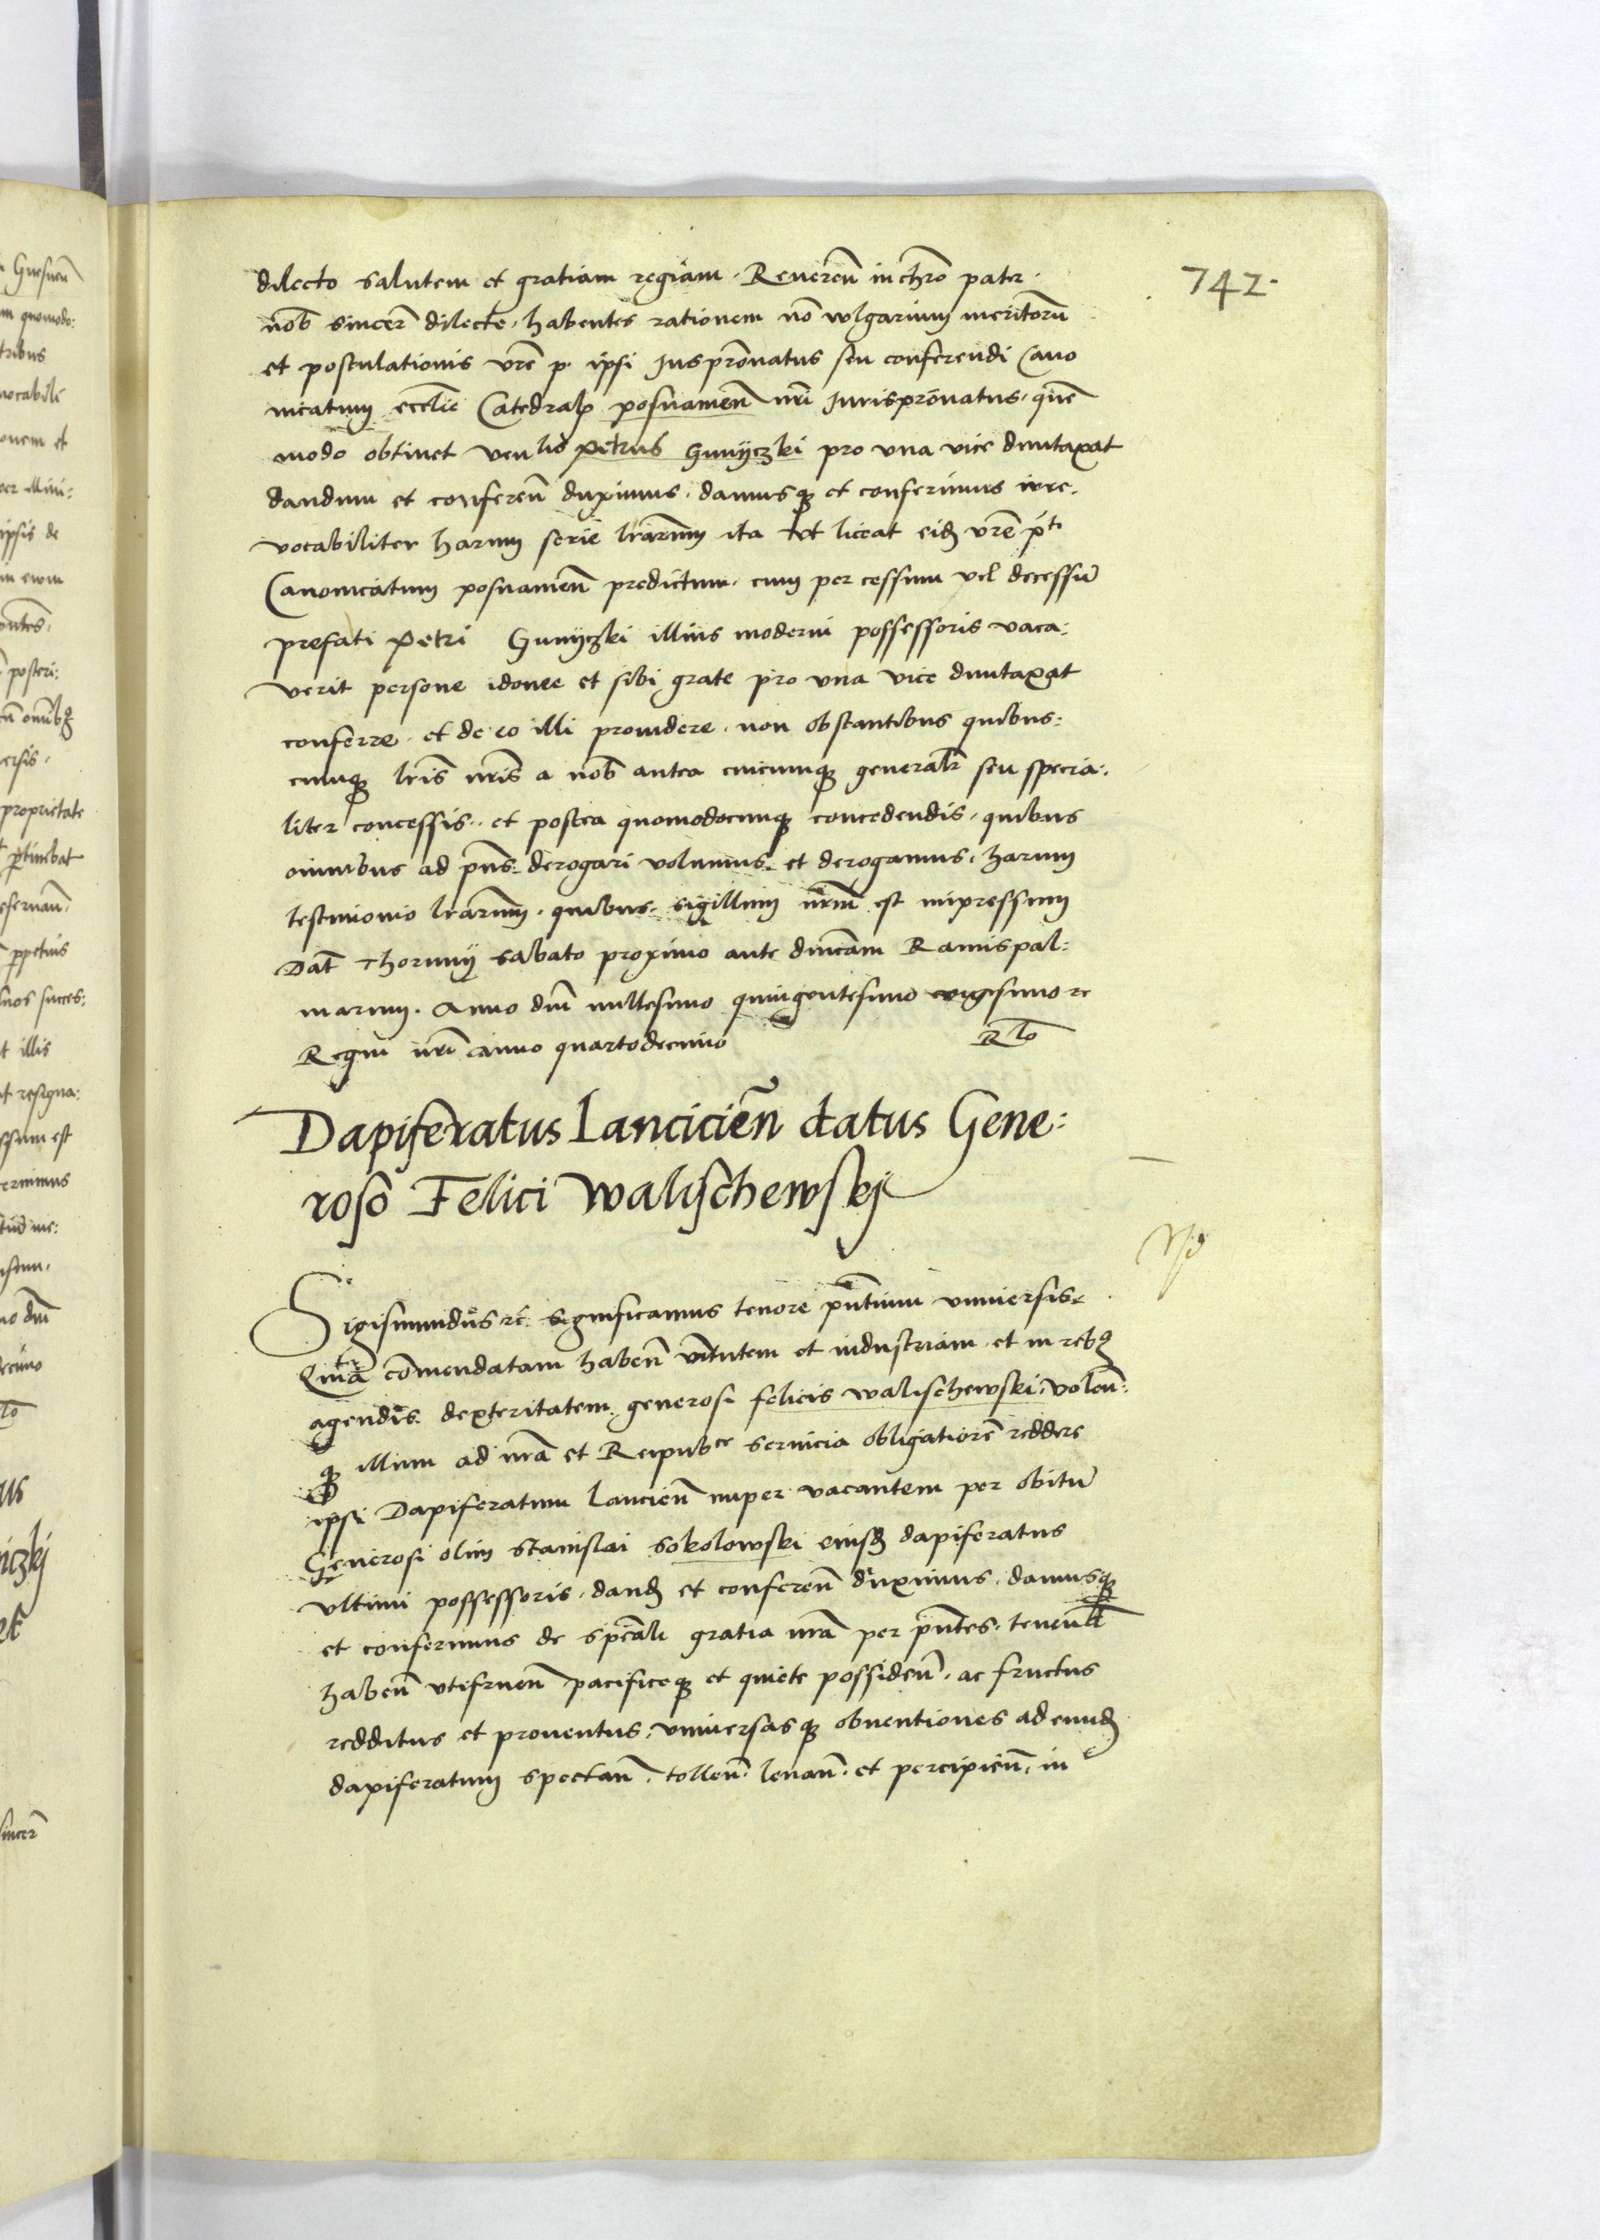 742.
dilecto salutem et gratiam regiam. Reveren̄ in chr̄o pater.
nob̄ sincer̄ dilecte, habentes rationem nō wlgarium meritorū
et postulationis vr̄e p. ipsi Juspr̄onatus seu conferendi Cano
nicatum eccl̄ie Catedral posnanien̄ nr̄i Jurispr̄onatus, quē
modo obtinet ven lis Petrus Gunyczki pro una vice duntaxat
dandum et conferen̄ duximus, damusq et conferimus irre.
vocabiliter harum serie lr̄arum ita vt liceat eid vr̄e p ti
Canonicatum posnanien̄ predictum, cum per cessum vel decessū
prefati Petri Gunyczki illius moderni possessoris vaca:
verit persone idonee et sibi grate pro una vice duntaxat
conferre, et de eo illi providere, non obstantibus quibus:
cunq lr̄is nr̄is a nob̄ antea cuicumq general̄r seu specia:
liter concessis, et postea quomodocunq concedendis, quibus
omnibus ad pn̄s derogari volumus, et derogamus, harum
testimonio lr̄arum, quibus sigillum nr̄um est impressum
Dat̄ Thoruny sabato proximo ante dn̄icam Ramispal:
marum. Anno dn̄i millesimo quingentesimo vigesimo rc
Regni nr̄i anno quartodecimo R lo
Dapiferatus Lancicien̄ datus Gene:
roso Felici Walischewskj
Sigismundus rc. significamus tenore pn̄tium universis.
commendatam haben̄ virtutem et industriam et in reb
agendis dexteritatem generosi felicis walischewski, volen̄:
q illum ad nr̄a et Reipub ce servicia obligatiorē reddere
ipsi Dapiferatum Lancicien̄ nuper vacantem per obitū
Generosi olim Stanislai Sokolowski eiusd dapiferatus
vltimi possessoris, dand et conferen̄ duximus, damusq
et conferimus de spēali gratia nr̄a per pn̄tes, tenend
haben̄ vtifruen̄ pacificeq et quiete possiden̄, ac fructus
redditus et proventus, vniversasq obventiones ad eund
dapiferatum spectan̄, tollen̄ levan̄ et percipien̄, in